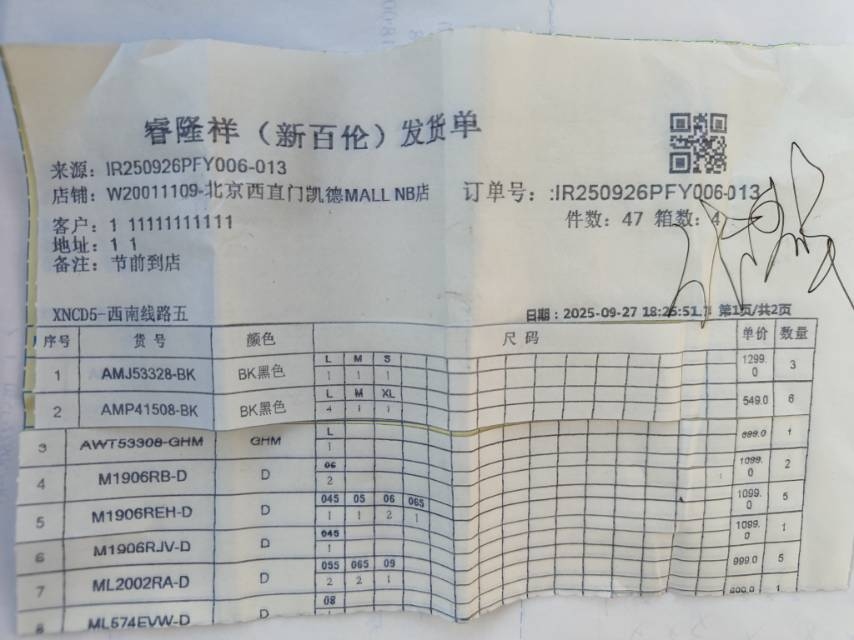 睿隆祥（新百伦）发货单
来源：IR250926PFY006-013
店铺：W20011109-北京西直门凯德MALL NB店 订单号：:IR250926PFY006-013
客户：1 11111111111 件数：47 箱数：4
地址：1 1
备注：节前到店
XNCD5-西南线路五 日期：2025-09-27 18:26:51. 第1页/共2页
序号 货号 颜色 尺码 单价 数量
L M S
1 AMJ53328-BK BK黑色 1 1 1 1299.0 3
L M XL
2 AMP41508-BK BK黑色 4 1 1 549.0 6
L
3 AWT53308-GHM GHM 1 899.0 1
06
4 M1906RB-D D 2 1099.0 2
045 05 06 065
5 M1906REH-D D 1 1 2 1 1099.0 5
045
6 M1906RJV-D D 1 1099.0 1
055 065 09
7 ML2002RA-D D 2 2 1 999.0 5
08
8 ML574EVW-D D 1